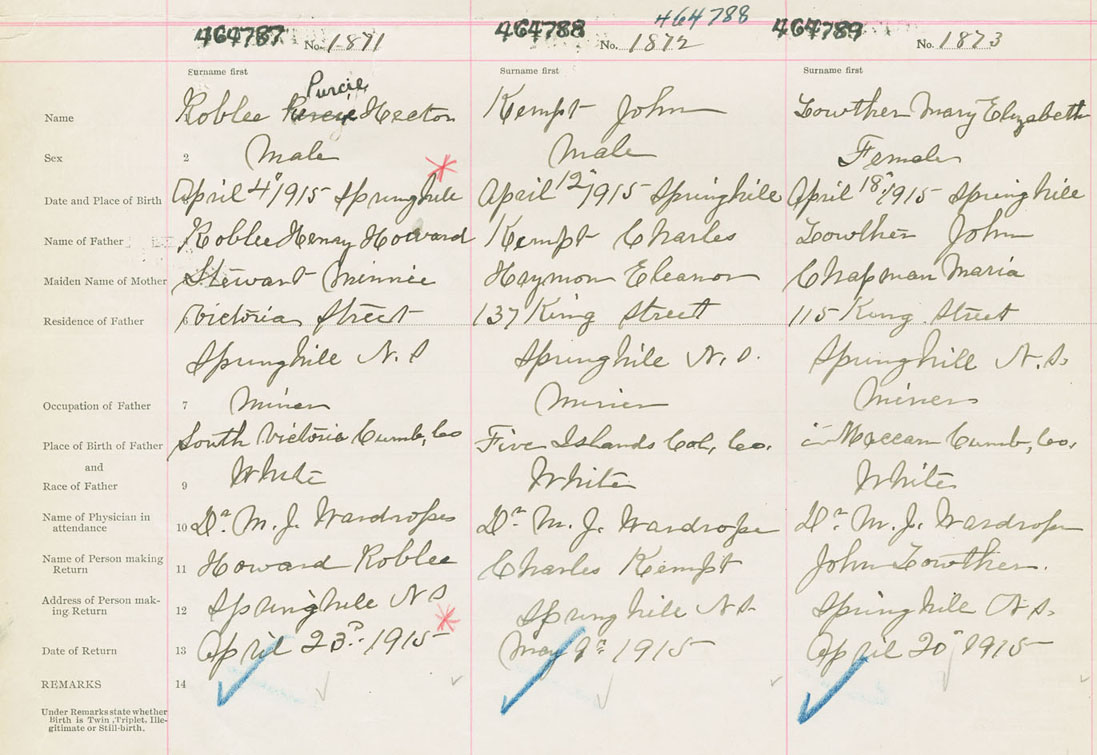 464787 464788 464788 464789
No. 1871 No. 1872 No. 1873
Surname first Surname first Surname first
Purcie
Name Roblee Hector Kempt John Lowther Mary Elizabeth
Sex 2 Male Male Female
Date and Place of Birth April 4" 1915 Springhill April 12" 1915 Springhill April 18" 1915 Springhill
Name of Father Roblee Henry Howard Kempt Charles Lowther John
Maiden Name of Mother Stewart Minnie Eleanor Chapman Maria
Residence of Father 6 Victoria Street 137 King Street 115 King Street
Springhill N.S Springhill N.S. Springhill N.S.
Occupation of Father 7 Miner Miner Miner
Place of Birth of Father South Victoria Cumb, Co Five Islands Col, Co. Maccan Cumb, Co,
and
Race of Father 9 White White White
Name of Physician in
attendance 10 Dr. M. J. Wardrope Dr. M. J. Wardrope Dr. M. J. Wardrope
Name of Person making
Return 11 Howard Roblee Charles Kempt John Lowther.
Address of Person mak-
ing Return 12 Springhill N S Springhill N.S. Springhill N.S.
Date of Return 13 April 23rd 1915 May 9th 1915 April 20" 1915
REMARKS 14
Under Remarks state whether
Birth is Twin, Triplet, Ille-
gitimate or Still-birth.